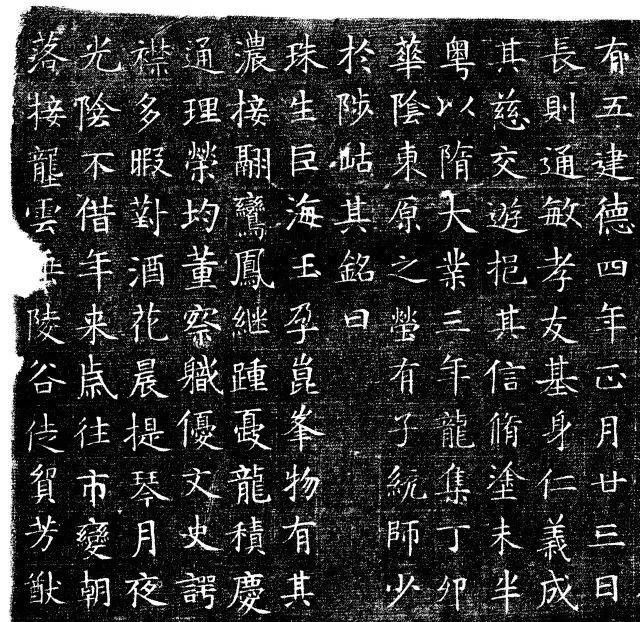 有五建德四年正月廿三日
長則通敏孝友基身仁義成
其慈交遊挹其信脩塗未半
粤以隋大業三年龍集丁卯
華陰東原之塋有子統師少
於陟岵其銘曰
珠生巨海玉孕崑峯物有其
濃接翮鸞鳳継踵夔龍積慶
通理榮均董察職優文史諤
襟多暇對酒花晨提琴月夜
光陰不借年来歳往市變朝
落接壟雲陵谷徒賀芳猷